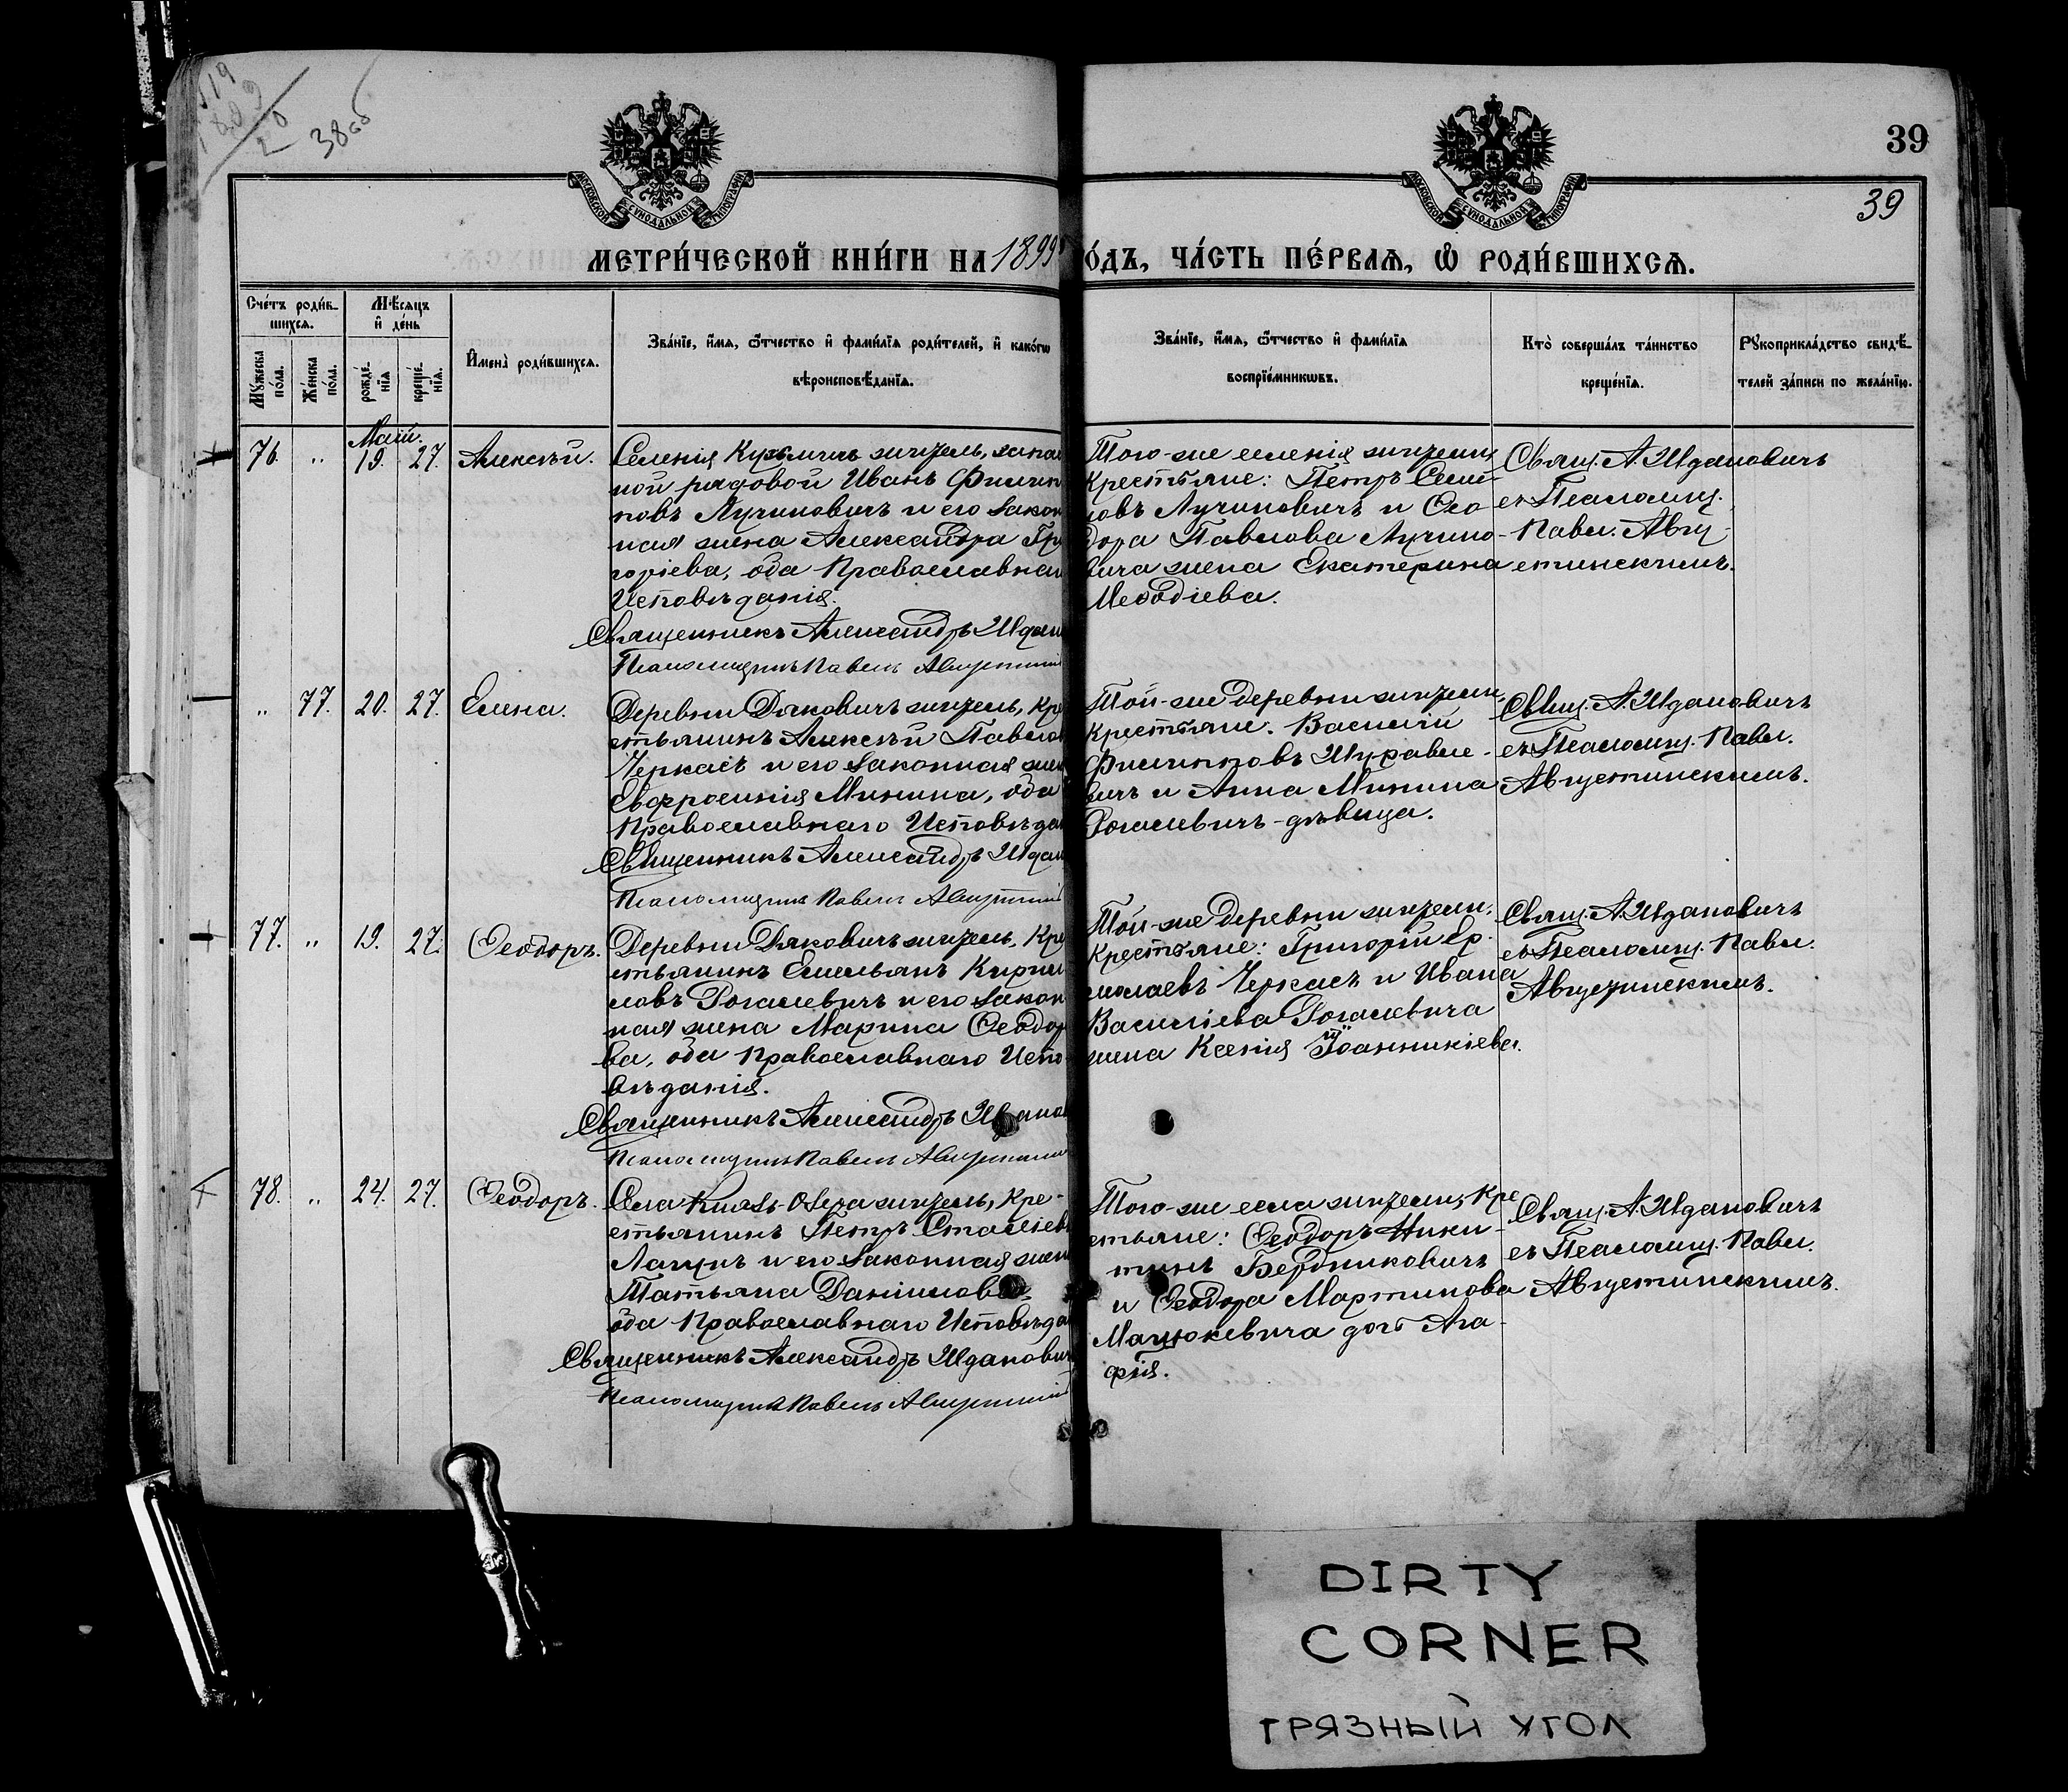 38об
39
39
МОСКОВСКОЙ СѴНОДАЛЬНОЙ ТИПОГРАФІИ
МОСКОВСКОЙ СѴНОДАЛЬНОЙ ТИПОГРАФІИ
МЕТРИ́ЧЕСКОЙ КНИ́ГИ НА 1899 О́ДЪ, ЧА́СТЬ ПЕ́РВАЯ, Ѽ РОДИ́ВШИХСЯ.
Сче́тъ роди́в-
шихся.
Мѣ́сяцъ
и҆ де́нь
Мꙋ́жеска по́ла.
Же́нска по́ла.
рожде́нїя
креще́нїя.
И҆мена̀ роди́вшихся.
Зва́нїе, и҆́мя, ѻ҆́тчество и҆ фами́лїя роди́телей, и҆ како́гѡ
вѣроисповѣ́данїя.
Зва́нїе, и҆́мя, ѻ҆́тчество и҆ фами́лїя
воспрїе́мникѡвъ.
Кто̀ соверша́лъ та́инство
креще́нїя.
Рꙋкоприкла́дство свидѣ́-
телей за́писи по жела́нїю.
Май.
76. „ 19. 27. Алексѣй.
Селенія Кузьмичъ житель, запас
ной рядовой Иванъ Филип
повъ Лучиновичъ и его закон
ная жена Александра Гри
горіева, оба Православнаго
Исповѣданія.
Священникъ Александръ Ждан
Псаломщикъ Павелъ Августинскій
Того-же селенія жители,
Крестьяне: Петръ Семе
новъ Лучиновичъ и Ѳео
дора Павлова Лучино-
вича жена Екатерина
Меѳодіева.
Свящ. А. Ждановичъ
съ Псаломщ.
Павл. Авгу-
стинскимъ.
„ 77. 20. 27. Елена.
Деревни Дяковичъ житель, Кре
стьянинъ Алексѣй Павлов
Черкасъ и его законная жен
Евфросинія Минина, оба
Православнаго Исповѣдан
Священникъ Александръ Ждан
Псаломщикъ Павелъ Августинскій
Той-же деревни жители,
Крестьяне: Василій
Филипповъ Журавле-
вичъ и Анна Минина
Рогалевичъ-дѣвица.
Свящ. А. Ждановичъ
съ Псаломщ. Павл.
Августинскимъ.
77. „ 19. 27. Ѳеодоръ.
Деревни Дяковичъ житель, Кре
стьянинъ Емельянъ Кирил
ловъ Рогалевичъ и его закон
ная жена Марина Ѳеодор
ва, оба Православнаго Испо-
вѣданія.
Священникъ Александръ Жданов
Псаломщикъ Павелъ Августинскій
Той-же деревни жители,
Крестьяне: Григорій Ер-
молаевъ Черкасъ и Ивана
Василіева Рогалевича
жена Ксенія Іоанникіева.
Свящ. А. Ждановичъ
съ Псаломщ. Павл.
Августинскимъ.
78. „ 24. 27. Ѳеодоръ.
Села Князь-Озера житель, Кре-
стьянинъ Петръ Стасіев
Лагунъ и его законная жен
Татьяна Даніилова,
оба Православнаго Исповѣда
Священникъ Александръ Ждановичъ
Псаломщикъ Павелъ Августинскій
Того-же села жители, Кре
стьяне: Ѳеодоръ Ники-
тинъ Бердниковичъ
и Ѳеодора Мартинова
Мацюкевича дочь Ага-
фія.
Свящ. А. Ждановичъ
съ Псаломщ. Павл.
Августинскимъ.
DIRTY
CORNER
ГРЯЗНЫЙ УГОЛ